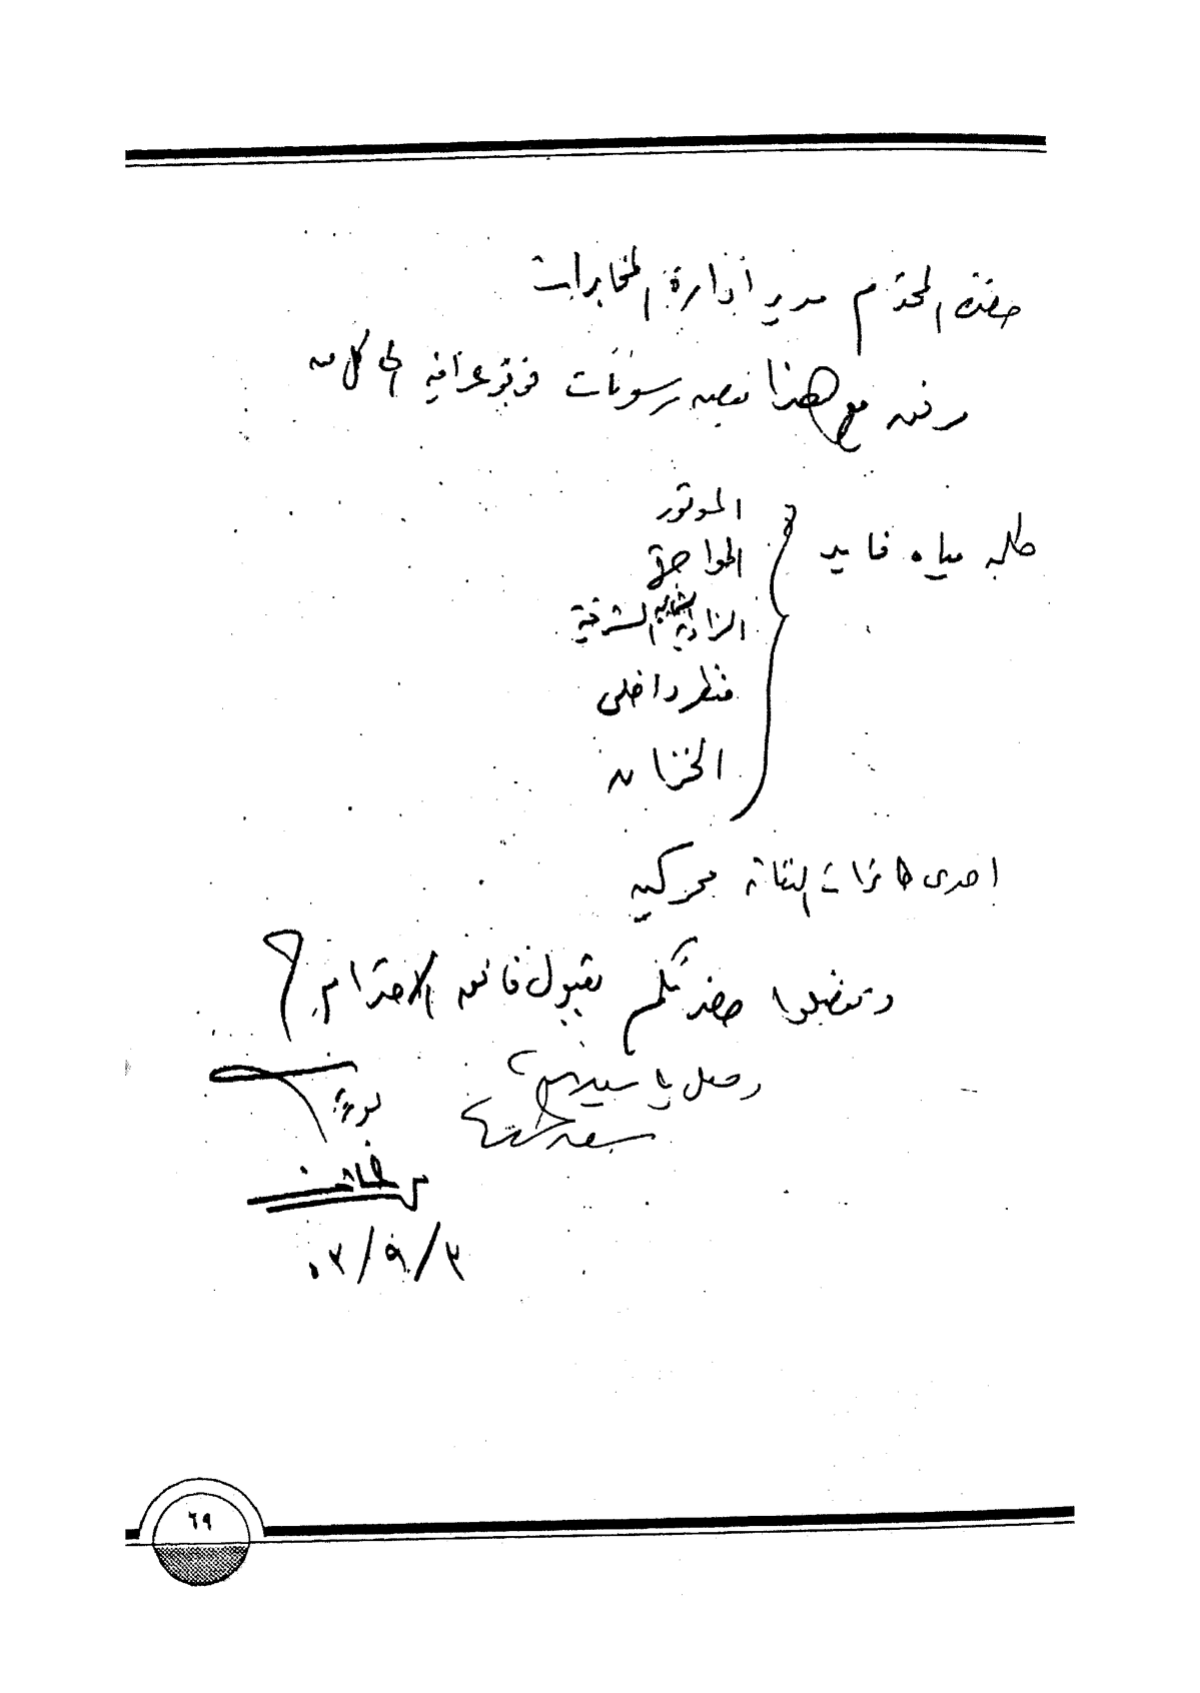 حضرة المحترم مدير إدارة المخابرات
رفق مع هذا بعض رسومات فوتوغرافية الى كل من
طلمبة مياه فايد
الموتور
الواجهة
الزاوية الشمالية الشرقية
منظر داخلى
الخزان
احدى طائرات النفاثة بمحركين
وتفضلوا حضرتكم بقبول فائق الاحترام
وصل يا سيدى
٠٢/٩/٣
٦٩